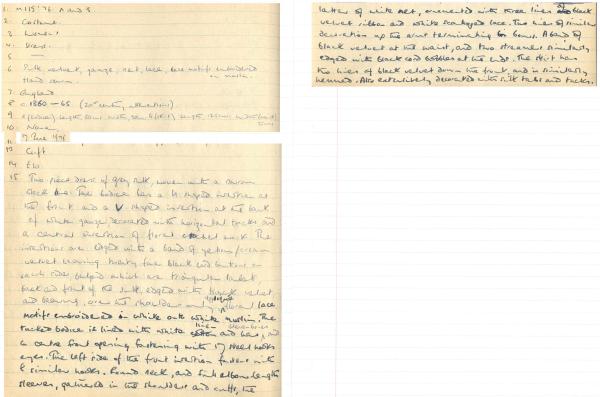 1. M115'76 A and B.
2. Costume
3. Women's
4. Dress
5. —
6. Silk, velvet, gauze, net, lace, lace motifs embroidered on muslin.
Hand sewn.
7. England
8. c.1860-65 (20th century alterations)
9.
10. None
11. 7 June 1976
13 Gift
14
15 Two piece dress of grey silk, woven with a
. The bodice has a shaped insertion at
the front and a V shaped insertion at the back
of white gauze decorated with horizontal tucks and
a central insertion of floral work. The
insertions are edged with a band of yellow/cream
velvet bearing twenty four black buttons on
each side, beyond which are triangular
back and front of the silk, edged with black velvet
and bearing, over the shoulders only, floral lace
motifs embroidered on white onto white muslin. The
tucked bodice is lined with white linen and has
a centre front opening fastening with 17 steel hooks
eyes. The left side of the front insertion fastens with
6 similar hooks. Round neck, and full elbow length
sleeves, gathered in the shoulders and cuffs, the
latter of white net, ornamented with three lines of black
velvet ribbon and white scalloped lace. Two lines of similar
decoration up the arm terminating in bows. A band of
black velvet at the waist, and two streamers similarly
edged with black and bobbles at the end. The skirt has
two lines of black velvet down the front, and is similarly
hemmed. Also extensively decorated with silk tabs and tucks.